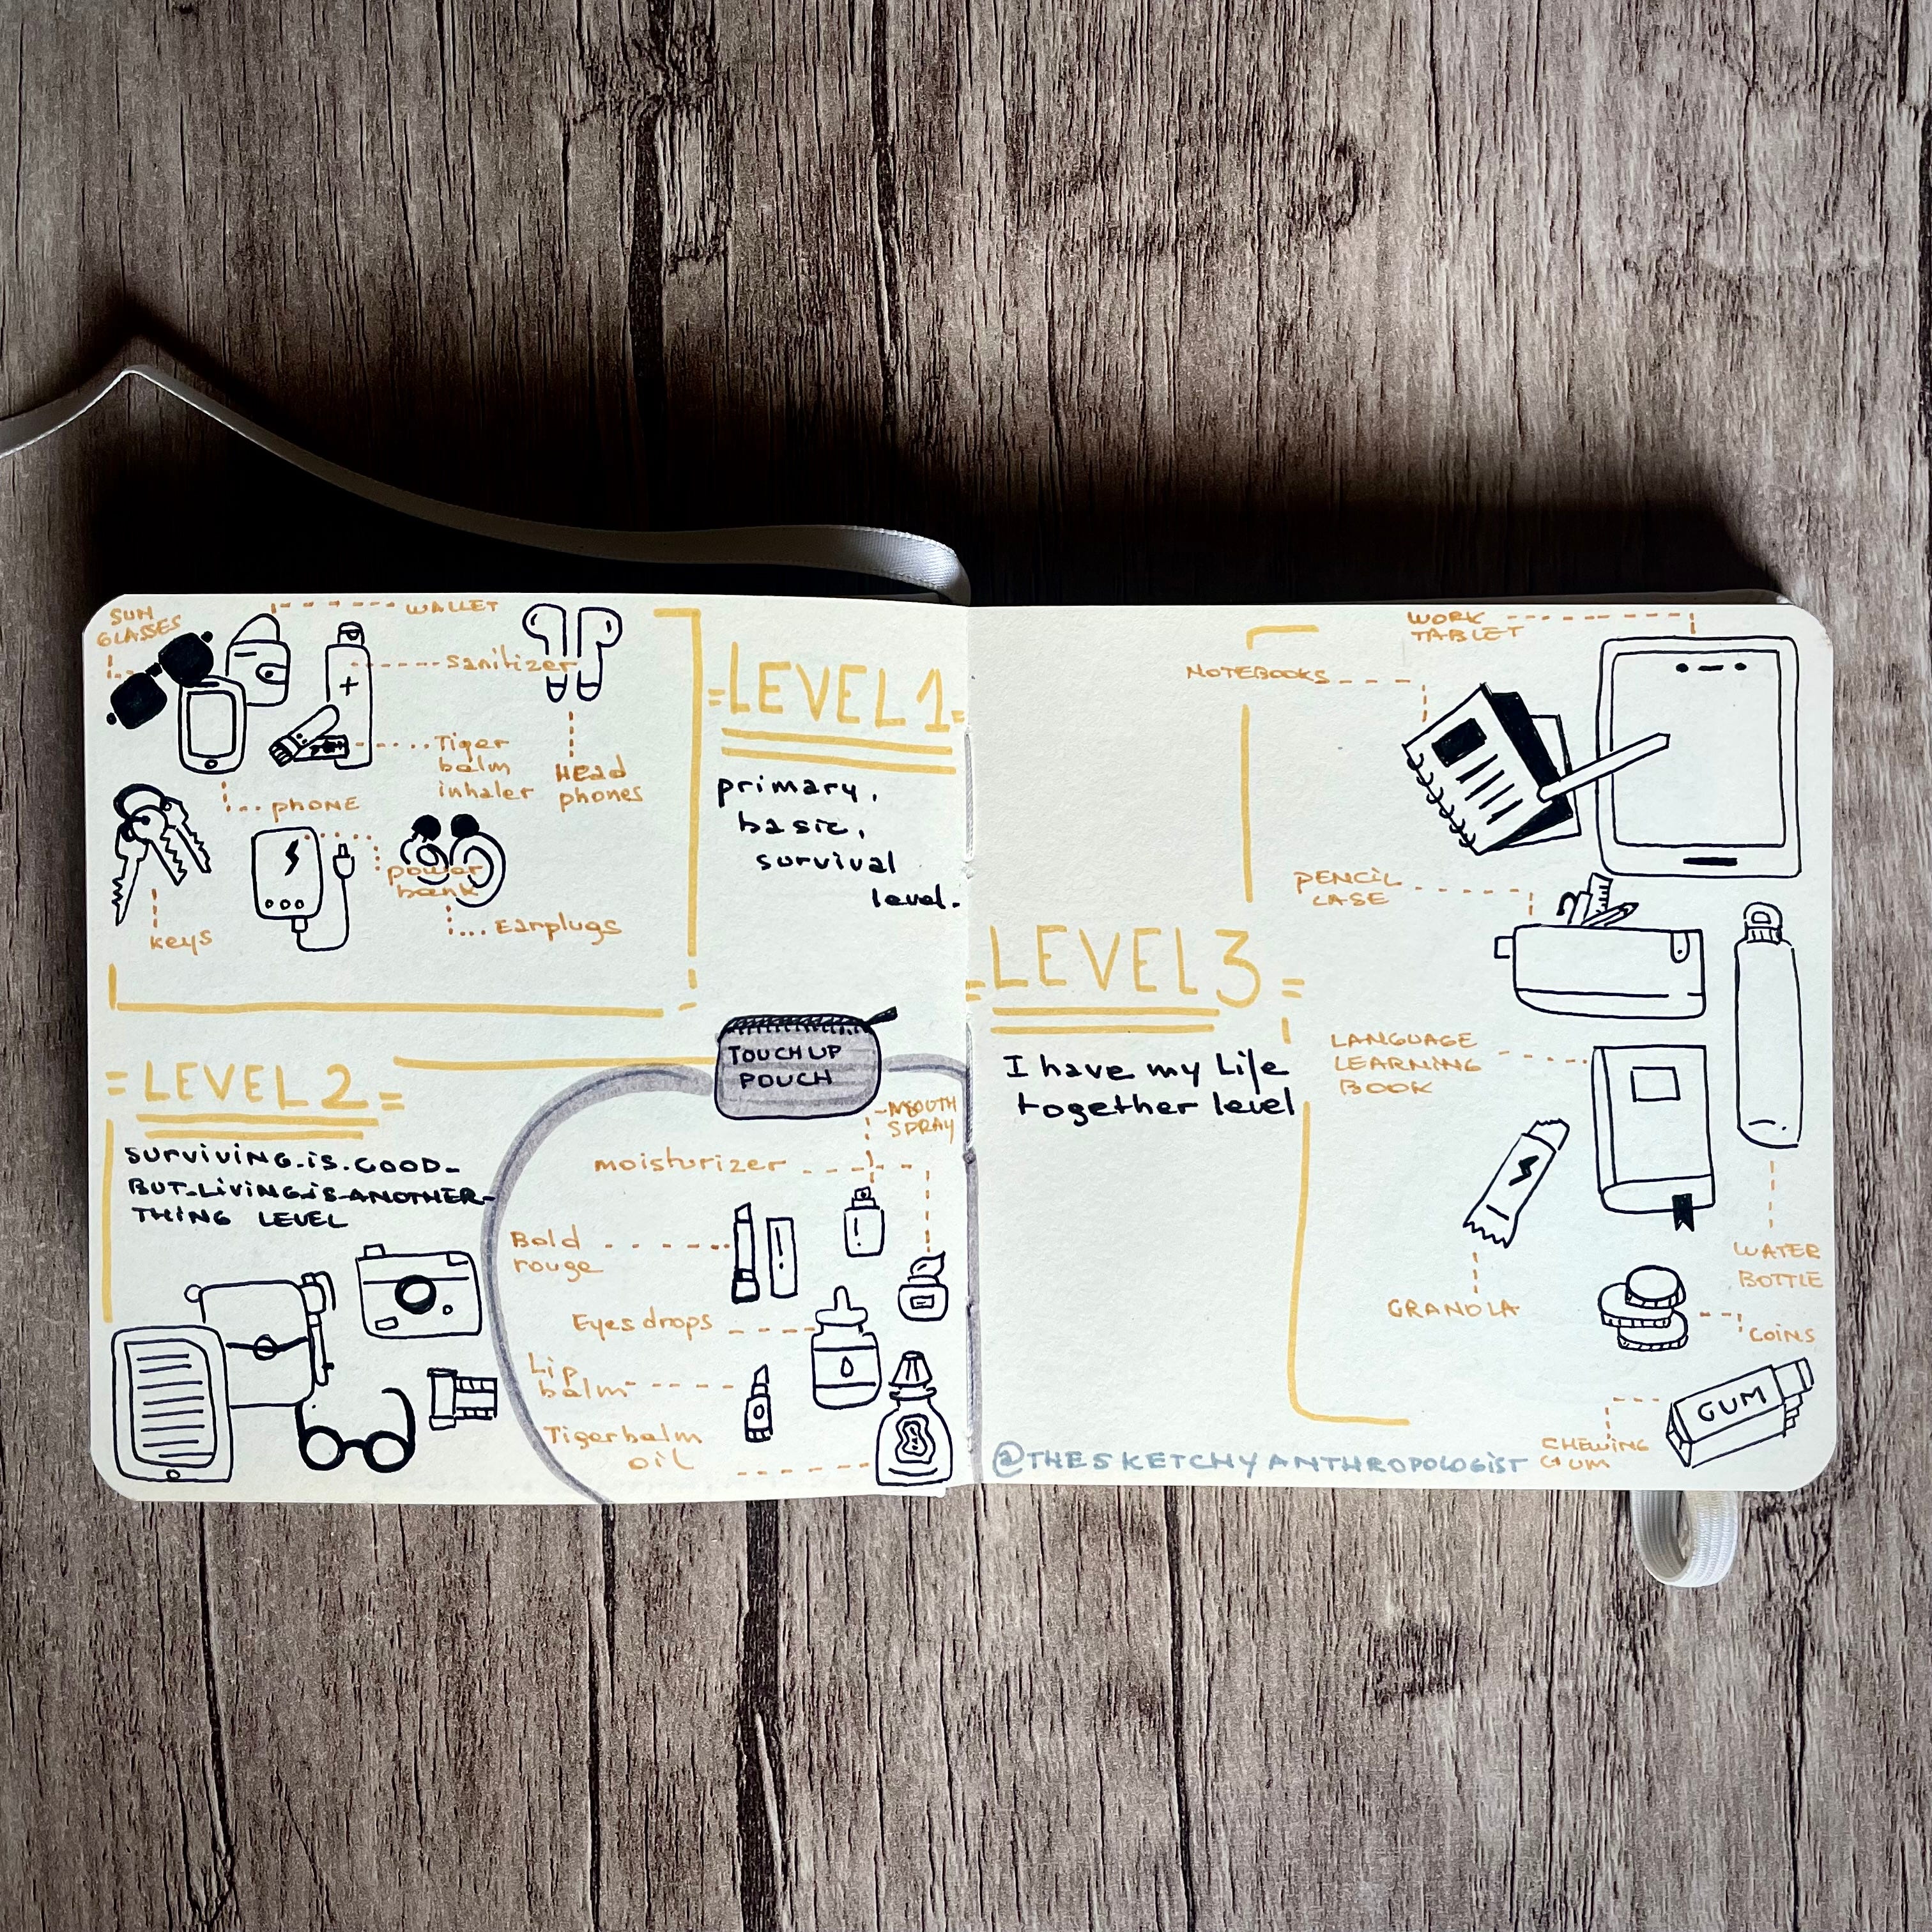 SUN
GLASSES
WALLET
Sanitizer
Tiger
balm
inhaler
Head
phones
PHONE
keys
power
bank
Earplugs
=LEVEL 1=
primary,
basic,
survival
level.
=LEVEL 2=
SURVIVING.IS.GOOD-
BUT-LIVING-IS-ANOTHER-
THING LEVEL
TOUCH UP
POUCH
MOUTH
SPRAY
moisturizer
Bold
rouge
Eyes drops
Lip
balm
Tigerbalm
oil
=LEVEL 3=
I have my Life
together level
WORK
TABLET
NOTEBOOKS
PENCIL
CASE
LANGUAGE
LEARNING
BOOK
WATER
BOTTLE
GRANOLA
COINS
GUM
CHEWING
GUM
@THESKETCHYANTHROPOLOGIST